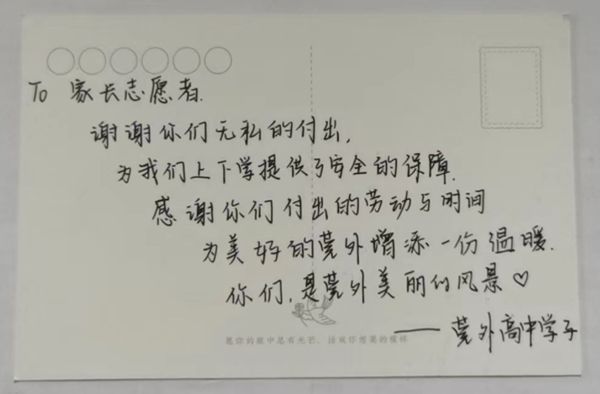 To 家长志愿者.
谢谢你们无私的付出,
为我们上下学提供了安全的保障.
感谢你们付出的劳动与时间
为美好的莞外增添一份温暖.
你们,是莞外美丽的风景♡
愿你的眼中总有光芒,活成你想要的模样
——莞外高中学子